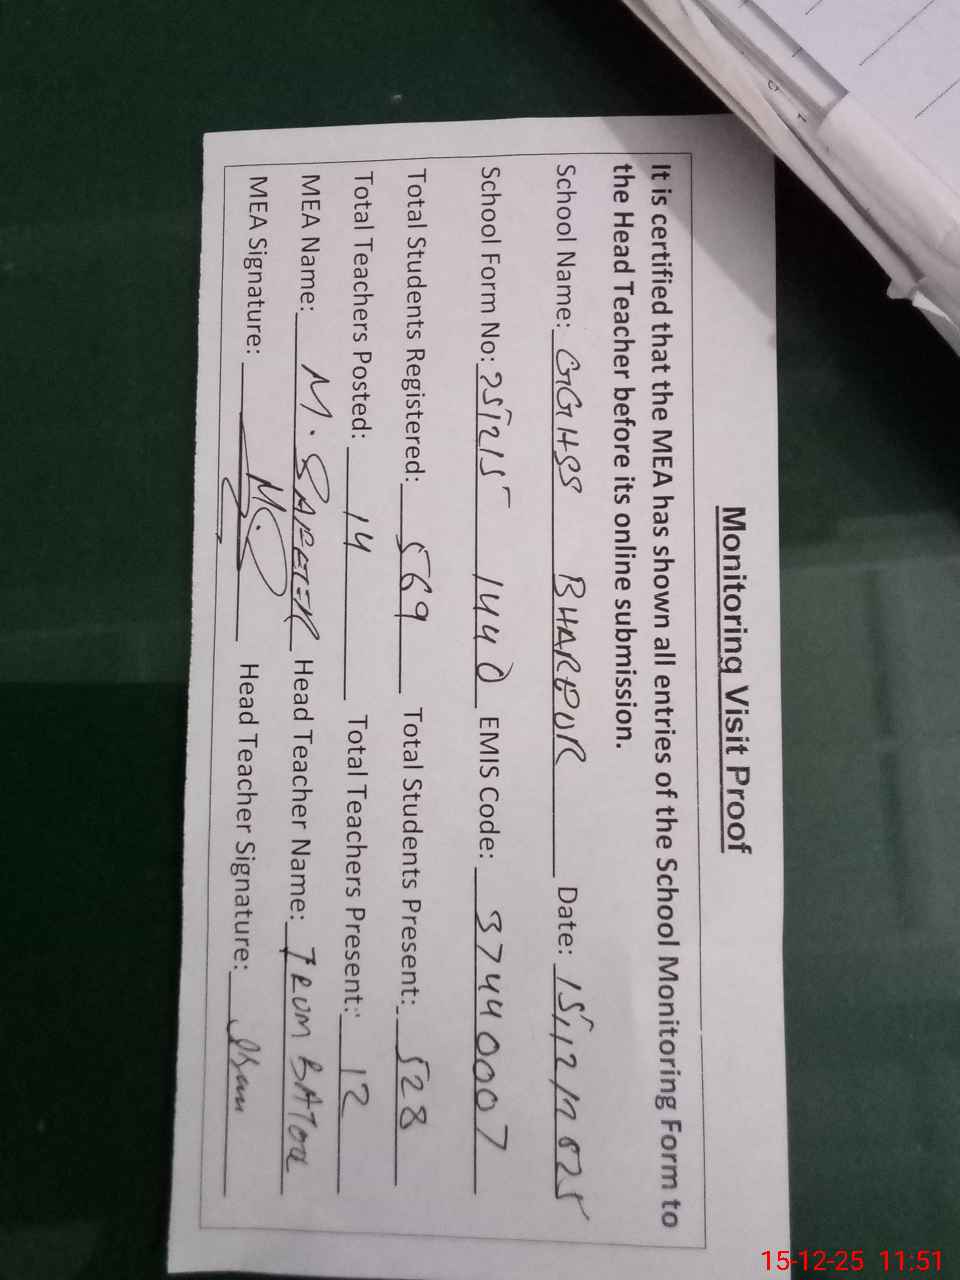 Monitoring Visit Proof
It is certified that the MEA has shown all entries of the School Monitoring Form to
the Head Teacher before its online submission.
School Name: GGHSS BHARPUR Date: 15/12/2025
School Form No: 251215 1440 EMIS Code: 37440007
Total Students Registered: 569 Total Students Present: 528
Total Teachers Posted: 14 Total Teachers Present: 12
MEA Name: M. SAFEER Head Teacher Name: IRUM BATOOL
MEA Signature: Head Teacher Signature: 
15-12-25 11:51